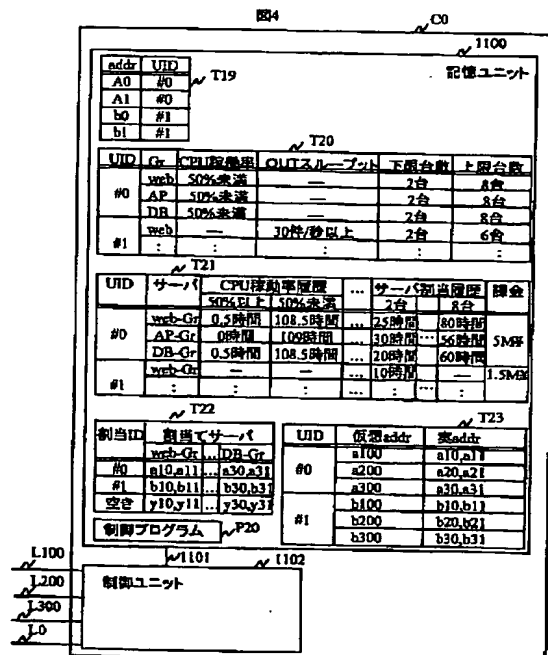 図4
C0
1100
記憶ユニット
addr UID
A0 #0
A1 #0
b0 #1
b1 #1
T19
T20
UID Gr CPU稼働率 OUTスループット 下限台数 上限台数
#0 web 50%未満 — 2台 8台
AP 50%未満 — 2台 8台
DB 50%未満 — 2台 8台
#1 web — 30件/秒以上 2台 6台
: : : : :
T21
UID サーバ CPU稼動率履歴 ... サーバ割当履歴 課金
50%以上 50%未満 2台 8台
#0 web-Gr 0.5時間 108.5時間 ... 25時間 ... 80時間 5M¥
AP-Gr 0時間 109時間 ... 30時間 ... 56時間
DB-Gr 0.5時間 108.5時間 ... 20時間 60時間
#1 web-Gr — — ... 10時間 — 1.5M¥
: : : ... : ... :
T22
割当ID 割当てサーバ
web-Gr ... DB-Gr
#0 a10,a11 ... a30,a31
#1 b10,b11 ... b30,b31
空き y10,y11 ... y30,y31
T23
UID 仮想addr 実addr
#0 a100 a10,a11
a200 a20,a21
a300 a30,a31
#1 b100 b10,b11
b200 b20,b21
b300 b30,b31
制御プログラム P20
1101
1102
制御ユニット
L100
L200
L300
L0